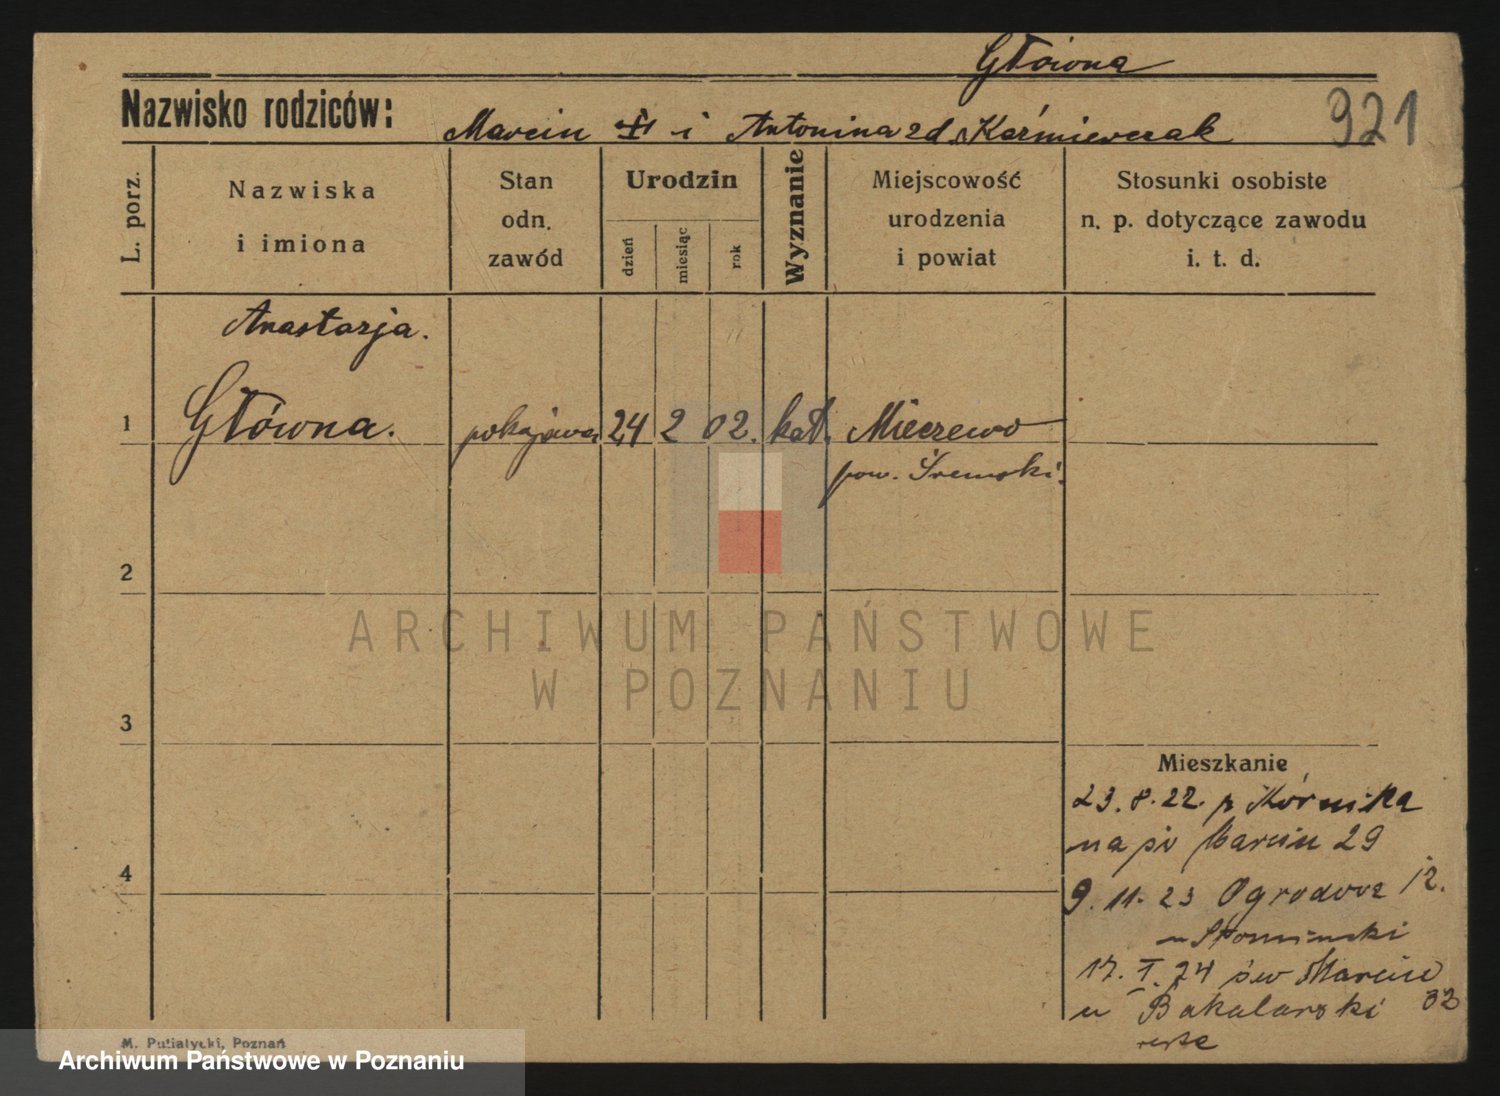 Główna
Nazwisko rodziców: Marcin i Antonina zd. Kaźmierczak
921
L. porz.
Nazwiska
i imiona
Stan
odn.
zawód
Urodzin
dzień
miesiąc
rok
Wyznanie
Miejscowość
urodzenia
i powiat
Stosunki osobiste
n. p. dotyczące zawodu
i. t. d.
Anastazja.
1 Główna. pokojowa 24 2 02. kat. Mieczewo
pow. Śremski.
2
3
4
Mieszkanie
23.8.22. z Kórnika
na św Marcin 29
9.11.23 Ogrodowa 12.
u Słomiński
17.I.24 św Marcin
u Bakalarski 32
M. Putiatycki, Poznań
ARCHIWUM PAŃSTWOWE
W POZNANIU
Archiwum Państwowe w Poznaniu